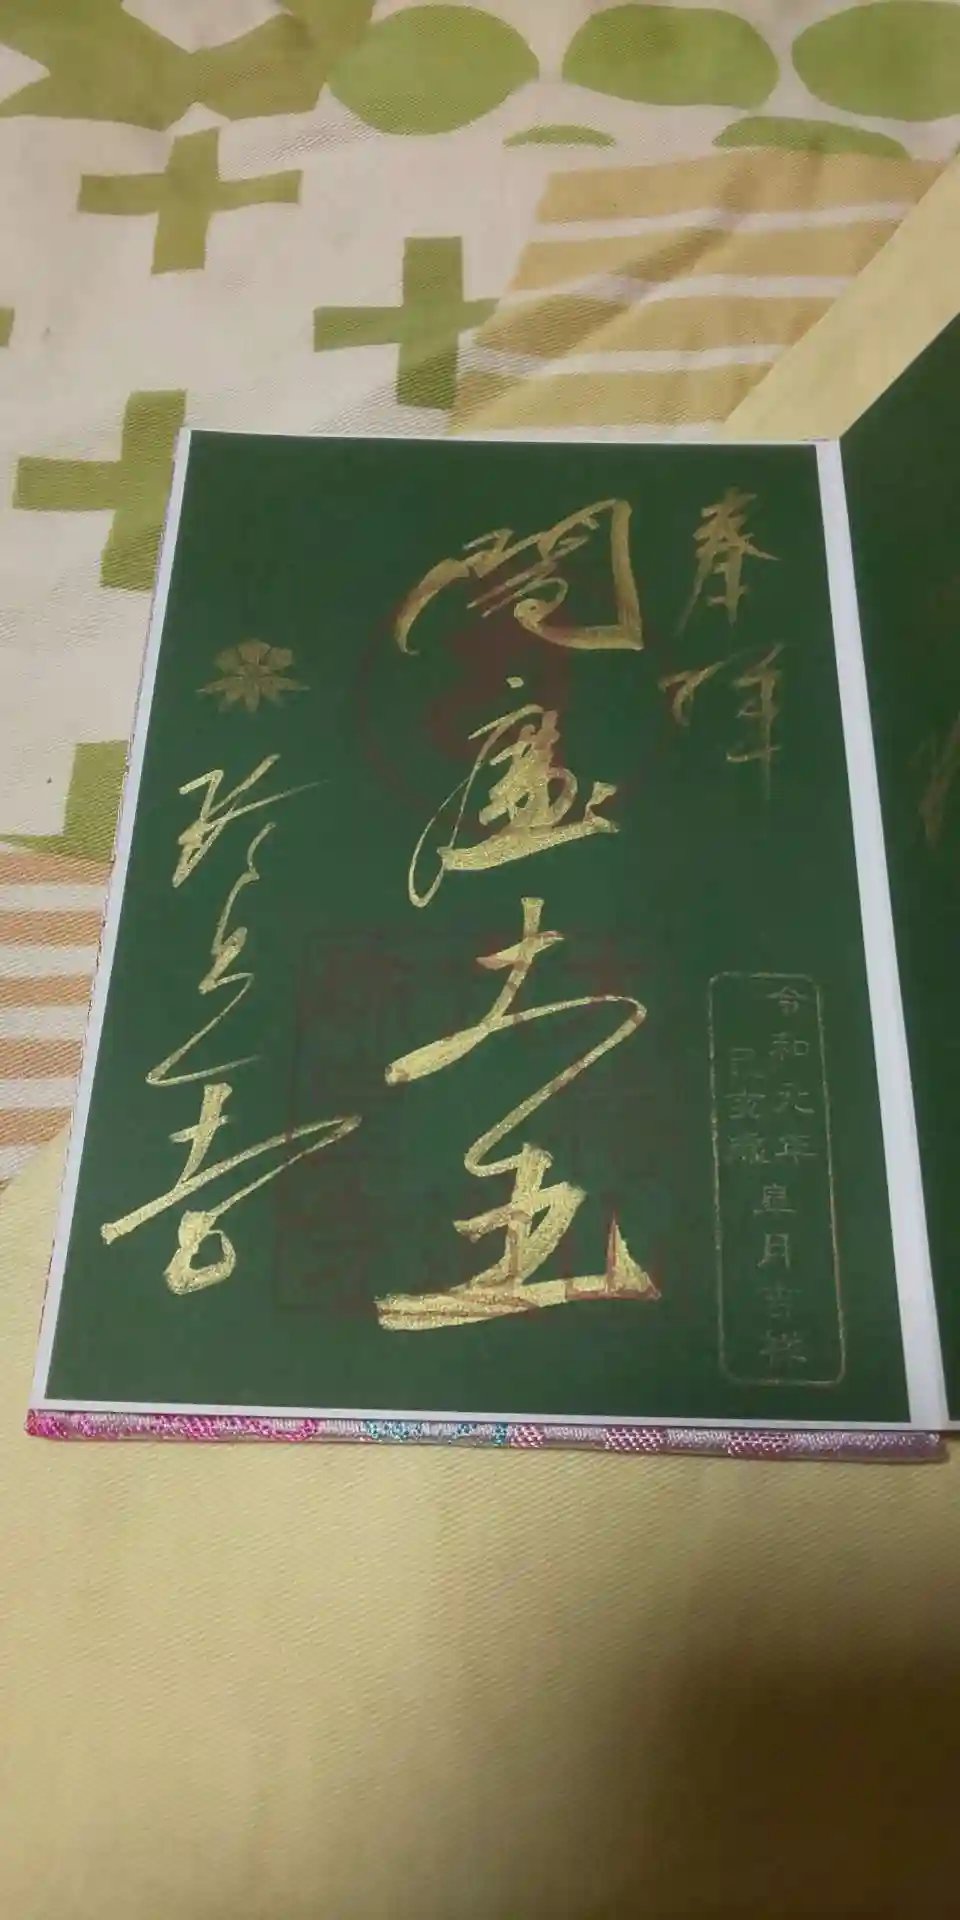 奉拝
令和元年皐月吉祥
己亥歳
閻魔大王
珍皇寺